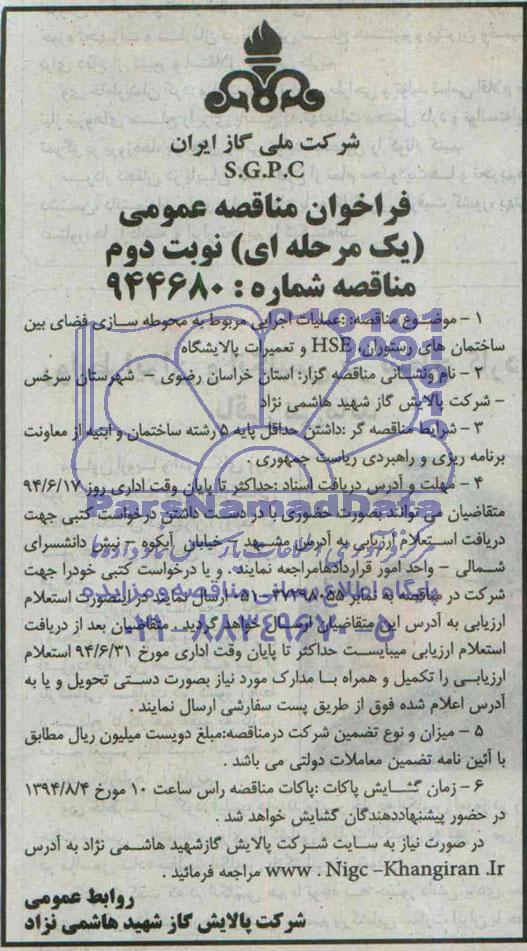 شرکت ملی گاز ایران
S.G.P.C
فراخوان مناقصه عمومی
(یک مرحله ای) نوبت دوم
مناقصه شماره : ۹۴۴۶۸۰
۱ – موضوع مناقصه: :عملیات اجرایی مربوط به محوطه سازی فضای بین
ساختمان های رستوران، HSE و تعمیرات پالایشگاه
۲ – نام ونشانی مناقصه گزار: استان خراسان رضوی – شهرستان سرخس
– شرکت پالایش گاز شهید هاشمی نژاد
۳ – شرایط مناقصه گر :داشتن حداقل پایه ۵ رشته ساختمان و ابنیه از معاونت
برنامه ریزی و راهبردی ریاست جمهوری
۴ – مهلت و آدرس دریافت اسناد :حداکثر تا پایان وقت اداری روز ۹۴/۶/۱۷
متقاضیان می توانند بصورت حضوری با در دست داشتن درخواست کتبی جهت
دریافت استعلام ارزیابی به آدرس مشهد – خیابان آبکوه – نبش دانشسرای
شمالی – واحد امور قراردادهامراجعه نمایند . و یا درخواست کتبی خودرا جهت
شرکت در مناقصه به نمابر ۳۷۲۹۸۰۵۵–۰۵۱ ارسال نمایند در اینصورت استعلام
ارزیابی به آدرس این متقاضیان ارسال خواهد گردید. متقاضیان بعد از دریافت
استعلام ارزیابی میبایست حداکثر تا پایان وقت اداری مورخ ۹۴/۶/۳۱ استعلام
ارزیابی را تکمیل و همراه با مدارک مورد نیاز بصورت دستی تحویل و یا به
آدرس اعلام شده فوق از طریق پست سفارشی ارسال نمایند .
۵ – میزان و نوع تضمین شرکت درمناقصه:مبلغ دویست میلیون ریال مطابق
با آئین نامه تضمین معاملات دولتی می باشد .
۶ – زمان گشایش پاکات :پاکات مناقصه راس ساعت ۱۰ مورخ ۱۳۹۴/۸/۴
در حضور پیشنهاددهندگان گشایش خواهد شد .
در صورت نیاز به سایت شرکت پالایش گازشهید هاشمی نژاد به آدرس
www . Nigc –Khangiran .Ir مراجعه فرمائید .
روابط عمومی
شرکت پالایش گاز شهید هاشمی نژاد
ParsNamadData
پایگاه اطلاع رسانی مناقصه و مزایده
۰۲۱–۸۸۳۴۹۶۷۰–۵